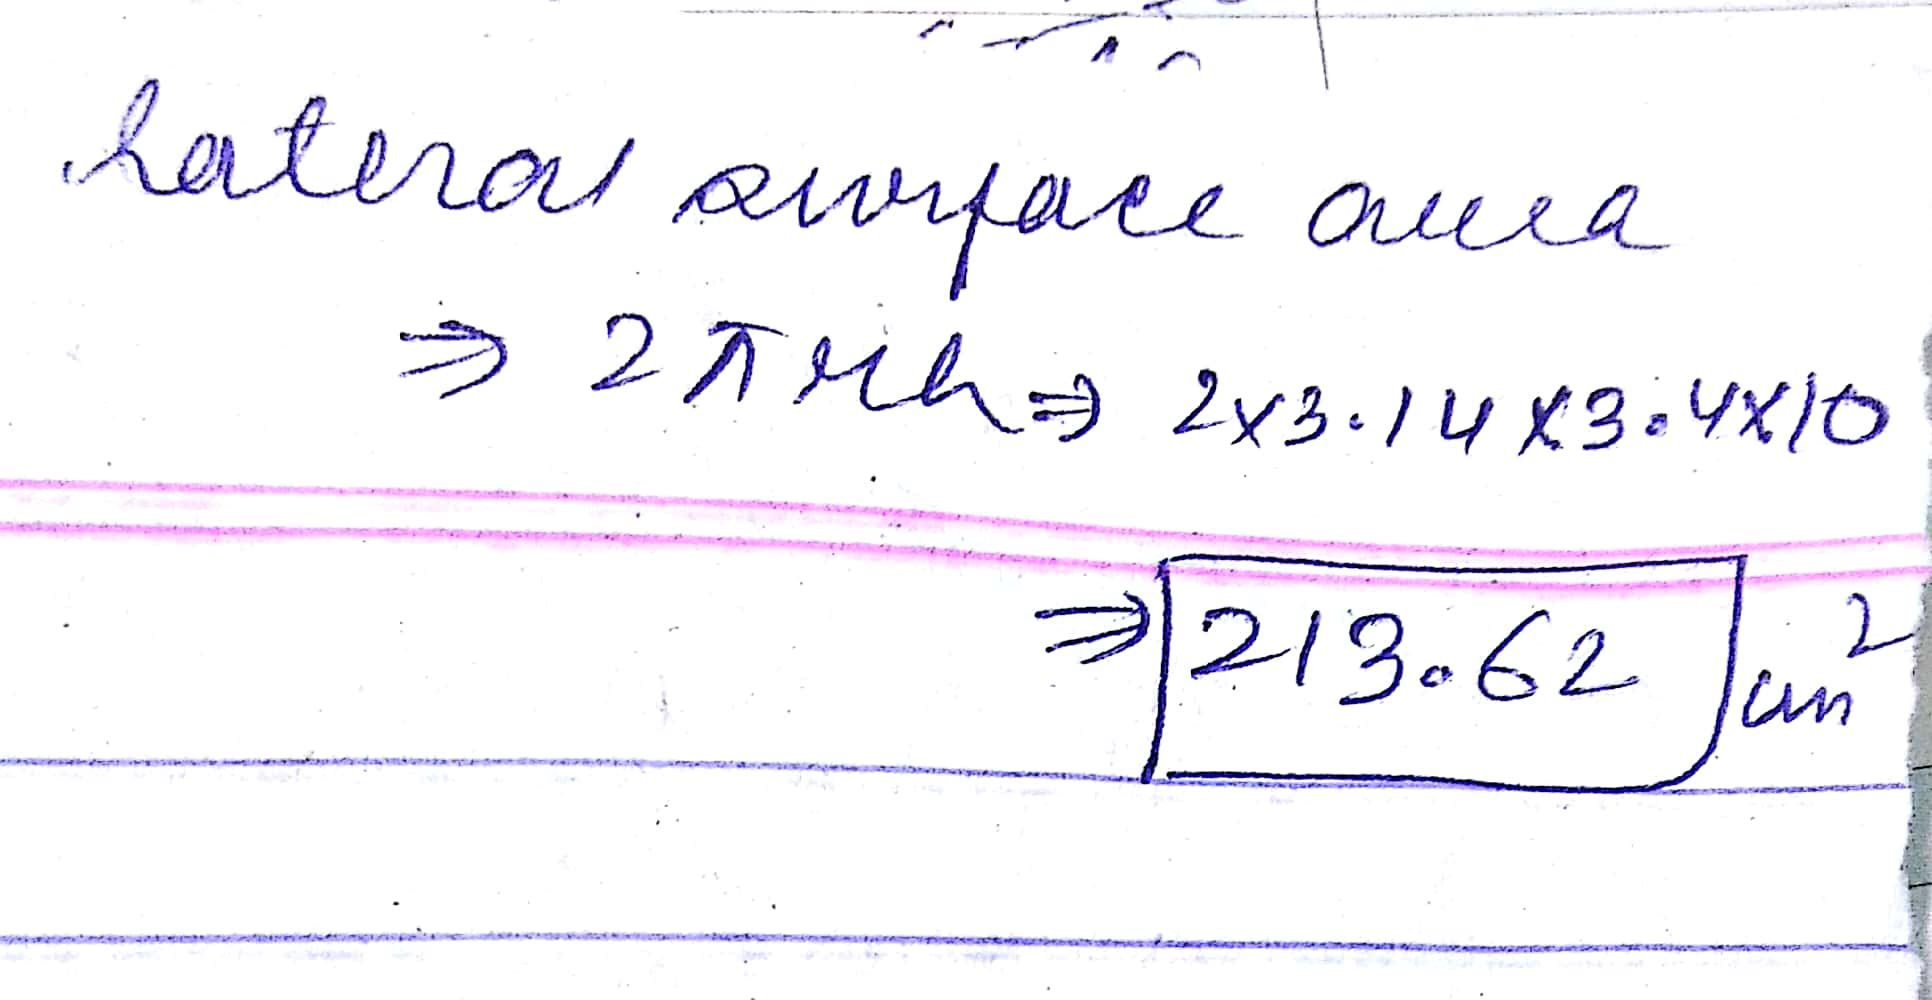 Lateral surface area
⇒ 2πrh ⇒ 2x3.14x3.4x10
⇒ 213.62 cm²